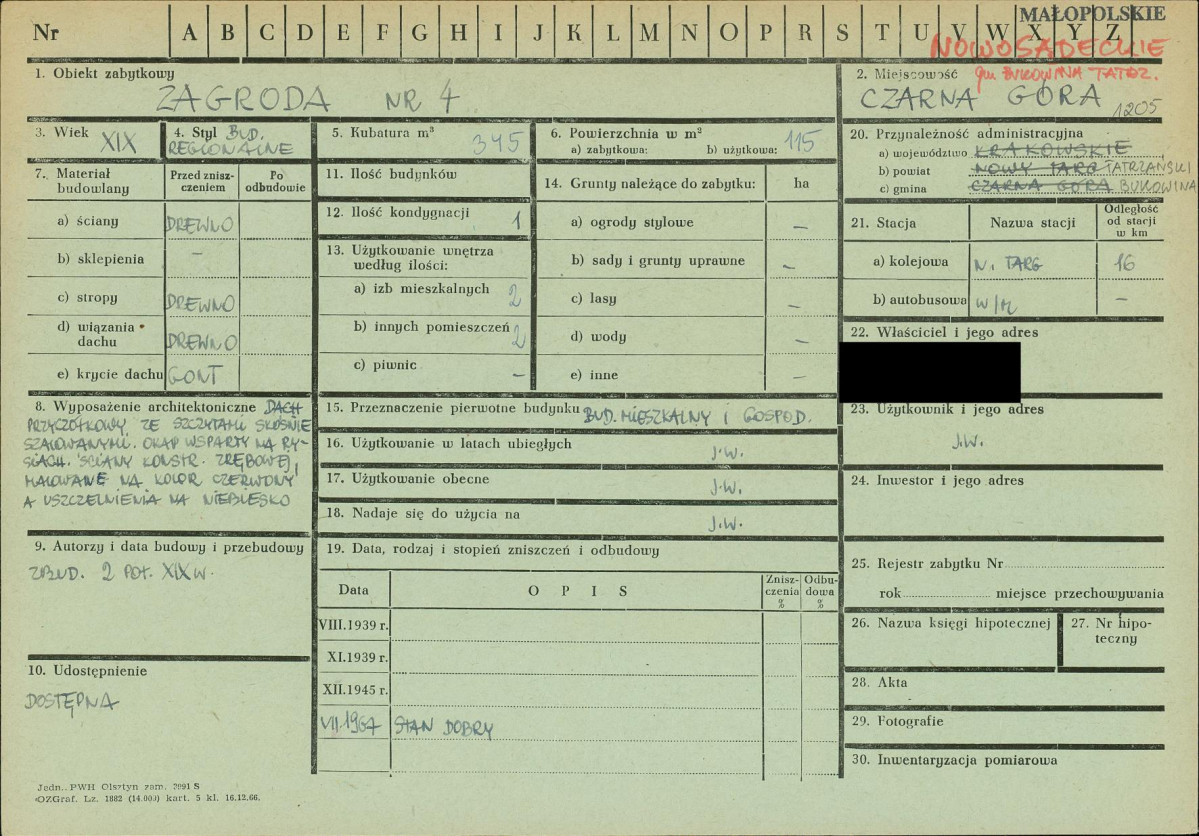 MAŁOPOLSKIE
Nr A B C D E F G H I J K L M N O P R S T U V W X Y Z
NOWOSĄDECKIE
gm BUKOWINA TATRZ.
1. Obiekt zabytkowy
ZAGRODA NR 4
2. Miejscowość
CZARNA GÓRA 1205
3. Wiek XIX
4. Styl BUD.
REGIONALNE
5. Kubatura m³ 345
6. Powierzchnia w m²
a) zabytkowa: b) użytkowa: 115
7. Materiał
budowlany
Przed znisz-
czeniem
Po
odbudowie
a) ściany DREWNO
b) sklepienia –
c) stropy DREWNO
d) wiązania
dachu DREWNO
e) krycie dachu GONT
8. Wyposażenie architektoniczne DACH
PRZYCZÓŁKOWY ZE SZCZYTAMI SKOŚNIE
SZALOWANYMI. OKAP WSPARTY NA RY-
SIACH. ŚCIANY KONSTR. ZRĘBOWEJ,
MALOWANE NA KOLOR CZERWONY
A USZCZELNIENIA NA NIEBIESKO
9. Autorzy i data budowy i przebudowy
ZBUD. 2 POŁ. XIX W.
10. Udostępnienie
DOSTĘPNA
11. Ilość budynków
12. Ilość kondygnacji 1
13. Użytkowanie wnętrza
według ilości:
a) izb mieszkalnych 2
b) innych pomieszczeń 2
c) piwnic –
14. Grunty należące do zabytku: ha
a) ogrody stylowe –
b) sady i grunty uprawne –
c) lasy –
d) wody –
e) inne –
15. Przeznaczenie pierwotne budynku BUD. MIESZKALNY I GOSPOD.
16. Użytkowanie w latach ubiegłych J.W.
17. Użytkowanie obecne J.W.
18. Nadaje się do użycia na J.W.
19. Data, rodzaj i stopień zniszczeń i odbudowy
Data OPIS
Znisz-
czenia
%
Odbu-
dowa
%
VIII.1939 r.
XI.1939 r.
XII.1945 r.
VII.1967 STAN DOBRY
20. Przynależność administracyjna
a) województwo KRAKOWSKIE
b) powiat NOWY TARG TATRZAŃSKI
c) gmina CZARNA GÓRA BUKOWINA
21. Stacja Nazwa stacji
Odległość
od stacji
w km
a) kolejowa N. TARG 16
b) autobusowa W/M –
22. Właściciel i jego adres
23. Użytkownik i jego adres
J.W.
24. Inwestor i jego adres
25. Rejestr zabytku Nr
rok miejsce przechowywania
26. Nazwa księgi hipotecznej
27. Nr hipo-
teczny
28. Akta
29. Fotografie
30. Inwentaryzacja pomiarowa
Jedn.. PWH Olsztyn zam. 3991 S
OZGraf. Lz. 1882 (14.000) kart. 5 kl. 16.12.66.